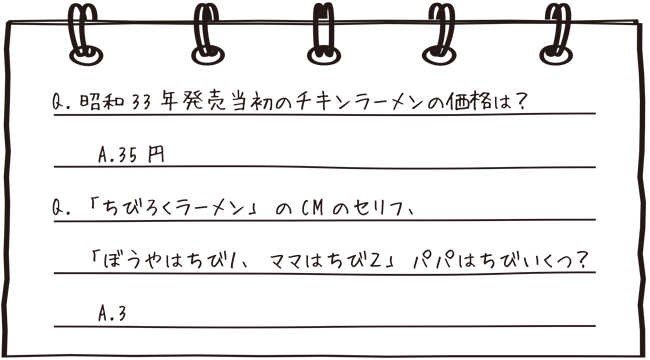 Q. 昭和33年発売当初のチキンラーメンの価格は？
A.35円
Q. 「ちびろくラーメン」のCMのセリフ、
「ぼうやはちび1、ママはちび2」パパはちびいくつ？
A.3